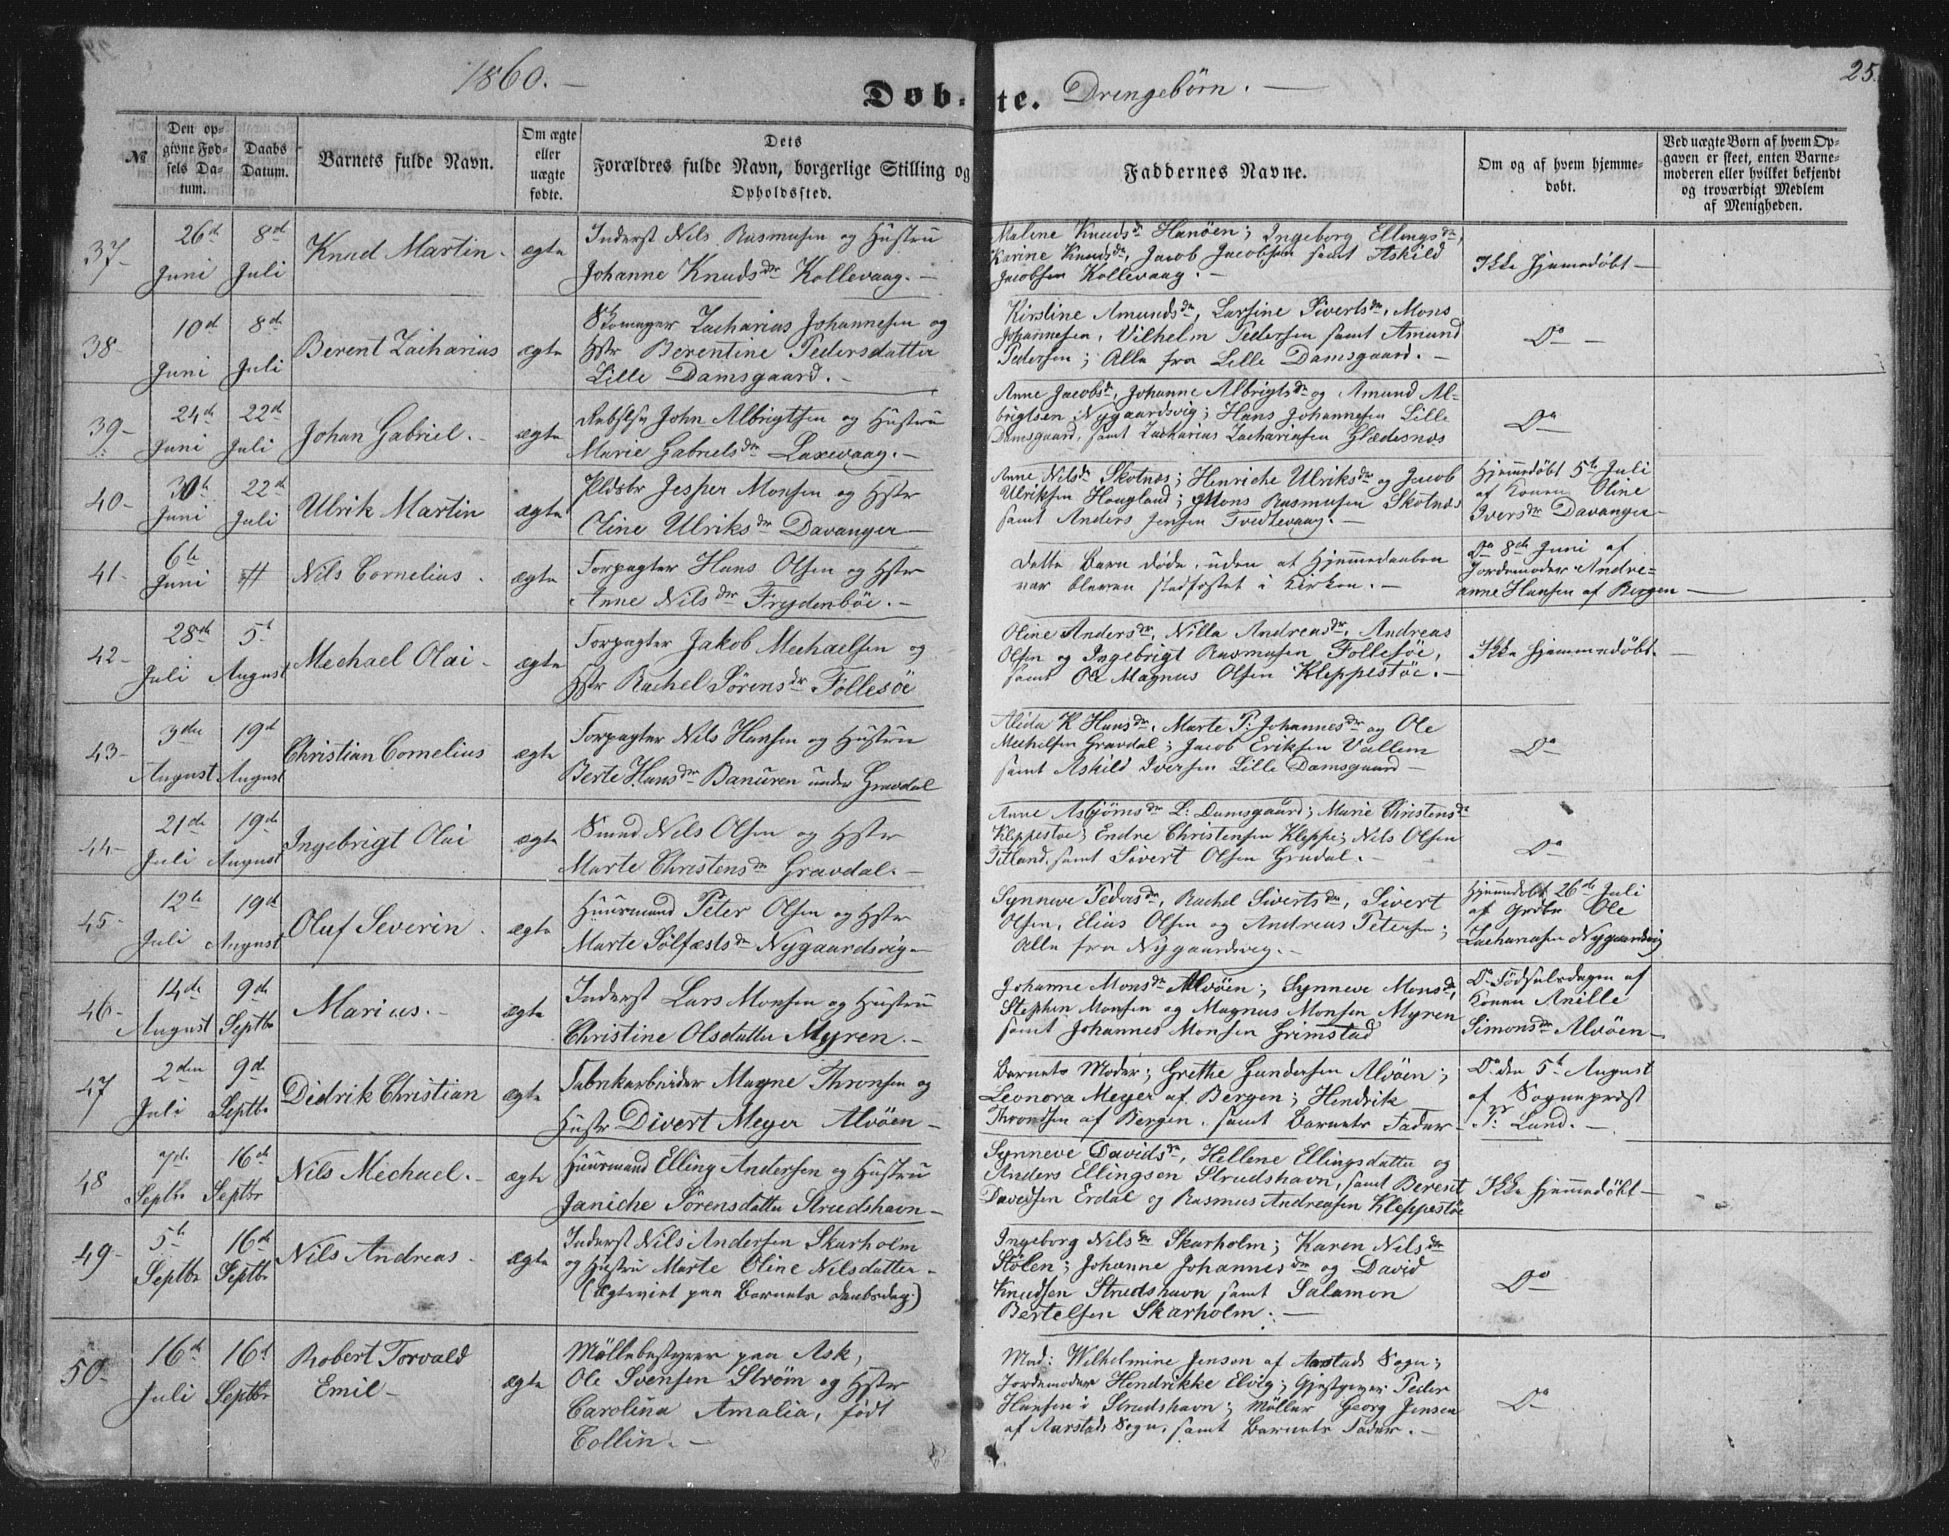 1860. —
Døb-te. Drengebørn. —
25.
№
Den op-
givne Fød-
sels Da-
tum.
Daabs
Datum.
Barnets fulde Navn.
Om ægte
eller
uægte
fødte.
Dets
Forældres fulde Navn, borgerlige Stilling og
Opholdssted.
Faddernes Navne.
Om og af hvem hjemme-
døbt.
Ved uægte Børn af hvem Op-
gaven er skeet, enten Barne-
moderen eller hvilket bekjendt
og troværdigt Medlem
af Menigheden.
37-
26d
Juni
8d
Juli
Knud Martin.
ægte
Inderst Nils Rasmusen og Hustru
Johanne Knudsdr Kollevaag. —
Malene Knudsdr Hanøen; Ingeborg Ellingsdr,
Karine Knudsdr, Jacob Jacobsen samt Askild
Jacobsen Kollevaag. —
Ikke hjemmedøbt —
38-
10d
Juni
8d
Juli
Berent Zacharias
ægte
Skomager Zacharias Johannesen og
Hstr Berentine Pedersdatter
Lille Damsgaard. —
Kirstine Amundsdr, Larsine Sivertsdr, Mons
Johannesen, Vilhelm Pedersen samt Amund
Pedersen; Alle fra Lille Damsgaard. —
Do —
39-
24d
Juni
22d
Juli
Johan Gabriel. -
ægte
John Albrigtsen og Hustru
Marie Gabrielsdr Laxevaag. —
Anne Jacobsdr, Johanne Albrigtsdr og Amund Al-
brigtsen Nygaardsvig; Hans Johannesen Lille
Damsgaard, samt Zacharias Zachariasen Glædesnæs
Do
40-
30h
Juni
22d
Juli
Ulrik Martin
ægte
Pldsbr Jesper Monsen og Hstr
Oline Ulriksdr Davanger
Anne Nilsdr Skotnes; Henriche Ulriksdr og Jacob
Ulriksen Haugland; Mons Rasmusen Skotnes
samt Anders Jensen Tvedtevaag. —
Hjemmedøbt 5te Juli
af Konen Oline
Iversdr Davanger —
41-
6te
Juni
#
Nils Cornelius.
ægte
Forpagter Hans Olsen og Hstr
Anne Nilsdr Frydenbøe. —
Dette Barn døde, uden at Hjemmedaaben
var bleven stadfæstet i Kirken. —
Do 8de Juni af
Jordemoder Andre=
anne Hansen af Bergen —
42-
28de
Juli
5t
August
Mechael Olai -
ægte
Forpagter Jakob Mechaelsen og
Hstr Rachel Sørensdr Follesøe
Oline Andersdr, Nilla Andreasdr, Andreas
Olsen og Ingebrigt Rasmusen Follesøe,
samt Ole Magnus Olsen Kleppestøe. —
Ikke hjemmedøbt. —
43-
3den
August
19d
August
Christian Cornelius
ægte
Forpagter Nils Hansen og Hustru
Berte Hansdr Banuren under Gravdal
Alida K Hansdr, Marte P: Johannesdr og Ole
Mechelsen Gravdal; Jacob Eriksen Vallem
samt Askild Iversen Lille Damsgaard —
Do
44-
21de
Juli
19de
August
Ingebrigt Olai
ægte
Smed Nils Olsen og Hstr
Marte Christensdr Gravdal. —
Anne Asbjørnsdr L: Damsgaard; Marie Christensdr
Kleppestøe; Endre Christensen Kleppe; Nils Olsen
Titland, samt Sivert Olsen Grudal. —
Do
45-
12te
Juli
19d
August
Oluf Severin.
ægte
Huusmand Peter Olsen og Hstr
Marte Sølfæstsdr Nygaardsvig —
Synneve Pedersdr, Rachel Sivertsdr, Sivert
Olsen, Elias Olsen og Andreas Petersen;
Alle fra Nygaardsvig. —
Hjemmedøbt 26de Juli
af Grdbr Ole
Zachariasen Nygaardsvig
46-
14de
August
9de
Septbr
Marius. -
ægte
Inderst Lars Monsen og Hustru
Christine Olsdatter Myren. —
Johanne Monsdr Alvøen; Synneve Monsdr,
Stephen Monsen og Magnus Monsen Myren
samt Johannes Monsen Grimstad
Do Fødselsdagen af
Konen Anille
Simonsdr Alvøen —
47
2den
Juli
9de
Septbr
Didrik Christian
ægte
Fabrikarbeider Magne Thronsen og
Hustr Divert Meyer Alvøen —
Barnets Moder; Grethe Gundersen Alvøen;
Leonora Meyer af Bergen; Hendrik
Throndsen af Bergen, samt Barnets Fader —
Do den 5t August
af Sognepræst
Pr: Lund. —
48
7de
Septbr
16de
Septbr
Nils Mechael. -
ægte
Huusmand Elling Andersen og Hustru
Janiche Sørensdatter Strudshavn —
Synneve Davidsdr, Hellene Ellingsdatter og
Anders Ellingsen Strudshavn, samt Berent
Davidsen Erdal og Rasmus Andreasen Kleppestøe
Ikke hjemmedøbt —
49-
5te
Septbr
16de
Septbr
Nils Andreas -
ægte
Inderst Nils Andersen Skarholm
og Hustru Marte Oline Nilsdatter. -
(Ægteviet paa Barnets Daabsdag.)
Ingeborg Nilsdr Skarholm; Karen Nilsdr
Stølen; Johanne Johannesdr og David
Knudsen Strudshavn samt Salamon
Bertelsen Skarholm. —
Do
50-
16de
Juli
16d
Septbr
Robert Torvald
Emil -
ægte
Møllebestyrer paa Ask,
Ole Svensen Strøm og Hstr
Carolina Amalia, født
Collin. —
Mad: Wilhelmine Jensen af Aarstads Sogn;
Jordemoder Hendrikke Elvig; Gjestgiver Peder
Hansen i Strudshavn; Møller Georg Jensen
af Aarstads Sogn, samt Barnets Fader. —
Do